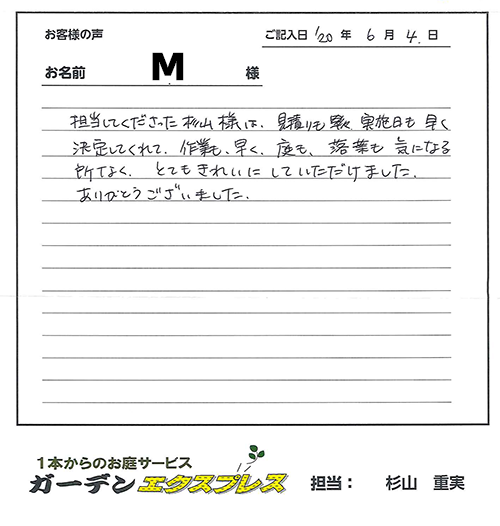 お客様の声
ご記入日 '20 年 6 月 4. 日
お名前 M 様
担当してくださった杉山様は、見積りも早く、実施日も早く
決定してくれて、作業も、早く、庭も、落葉も気になる
所なく、とてもきれいにしていただけました.
ありがとうございました.
1本からのお庭サービス
ガーデンエクスプレス
担当： 杉山 重実